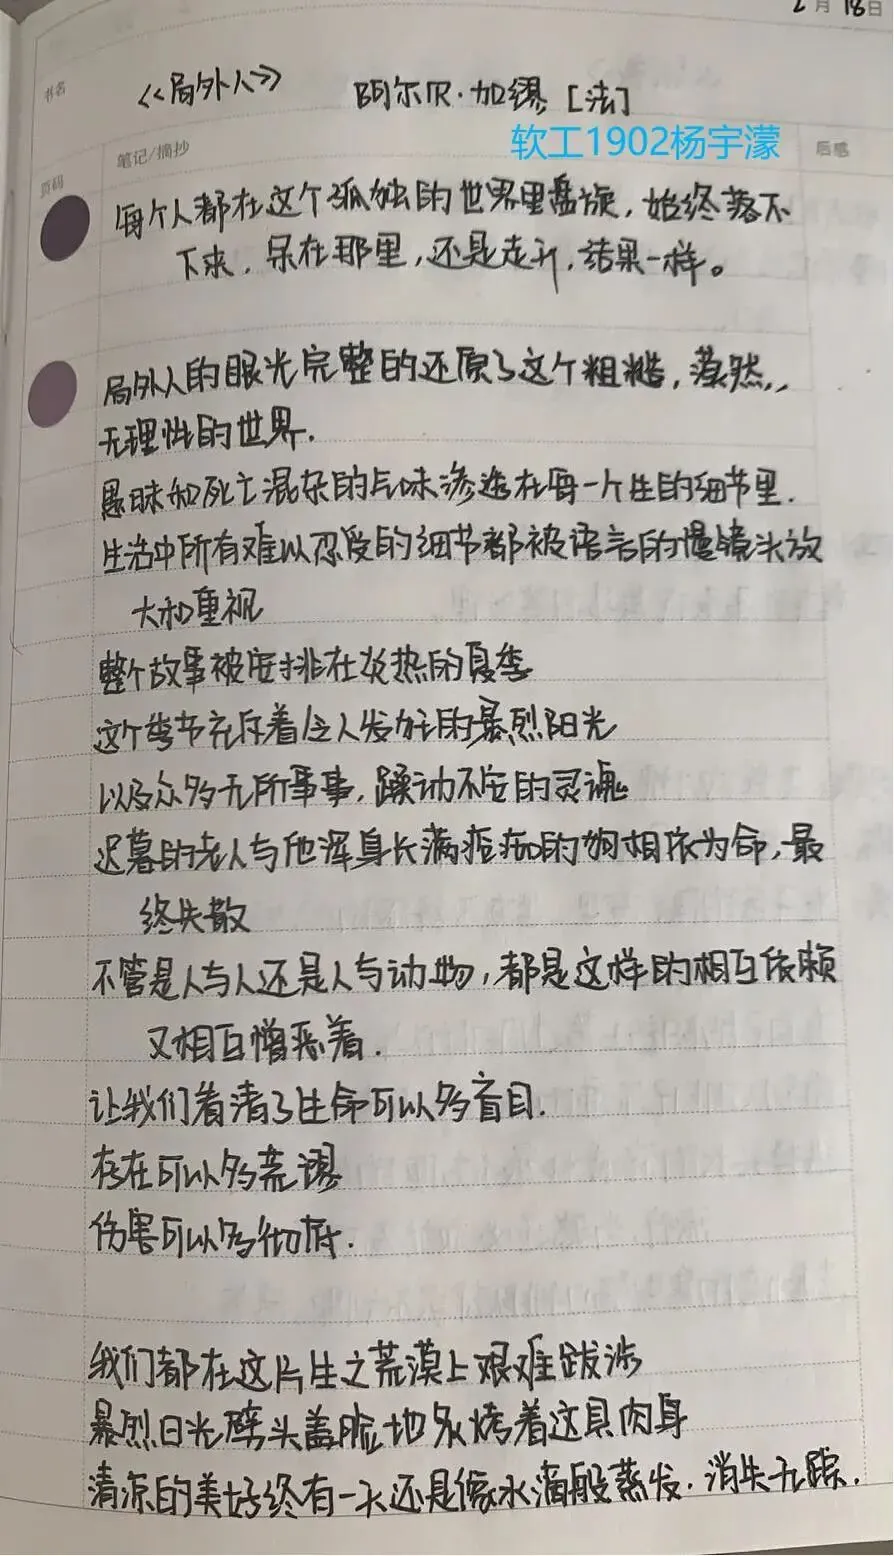 2月18日
书名
《局外人》 阿尔贝·加缪 [法]
软工1902杨宇濛
笔记/摘抄 后感
页码
每个人都在这个孤独的世界里盘旋,始终落不
下来,呆在那里,还是走开,结果一样。
局外人的眼光完整的还原了这个粗糙,荡然,,
无理性的世界.
愚昧和死亡混杂的气味渗透在每一个生的细节里.
生活中所有难以忍受的细节都被语言的慢镜头放
大和重视
整个故事被安排在炎热的夏季
这个季节充斥着令人发狂的暴烈阳光
以及众多无所事事,躁动不安的灵魂
迟暮的老人与他浑身长满疮痂的狗相依为命,最
终失散
不管是人与人还是人与动物,都是这样的相互依赖
又相互憎恶着.
让我们看清了生命可以多盲目.
存在可以多荒谬
伤害可以多彻底.
我们都在这片生之荒漠上艰难跋涉
暴烈日光劈头盖脸地炙烤着这具肉身
清凉的美好终有一天还是像水滴般蒸发.消失无踪.